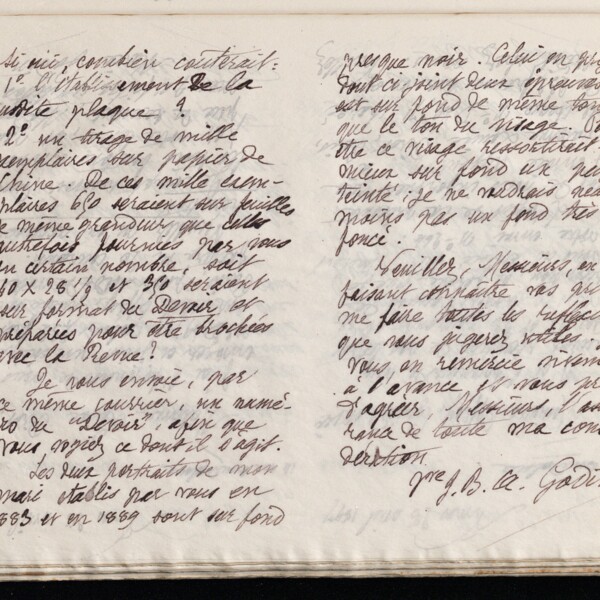 si oui combien couterait :
1° l'établissement de la
susdite plaque ?
2° un tirage de mille
exemplaires sur papier de
Chine. De ces mille exem-
plaires 650 seraient sur feuilles
de même grandeur que celles
autrefois fournies par vous
en certain nombre, soit
40 x 28 1/2 et 350 seraient
sur format du Devoir et
préparées pour être brochées
avec la Revue ?
Je vous envoie, par
ce même courrier, un numé-
ro du "Devoir", afin que
vous voyiez ce dont il s'agit.
Les deux portraits de mon
mari établis par vous en
1883 et en 1889 sont sur fond
presque noir. Celui en
dont ci joint deux épreuves
est sur fond de même ton
que le ton du visage.
être ce visage ressortirait
mieux sur fond un peu
teinté ; je ne voudrais
moins pas un fond très
foncé.
Veuillez, Messieurs, en
faisant connaître vos
me faire toutes les
que vous jugerez utiles.
vous en remercie vivement
à l'avance et vous
d'agréer, Messieurs, l'assu
rance de toute ma consi
dération
Vve J. B. A. Godin